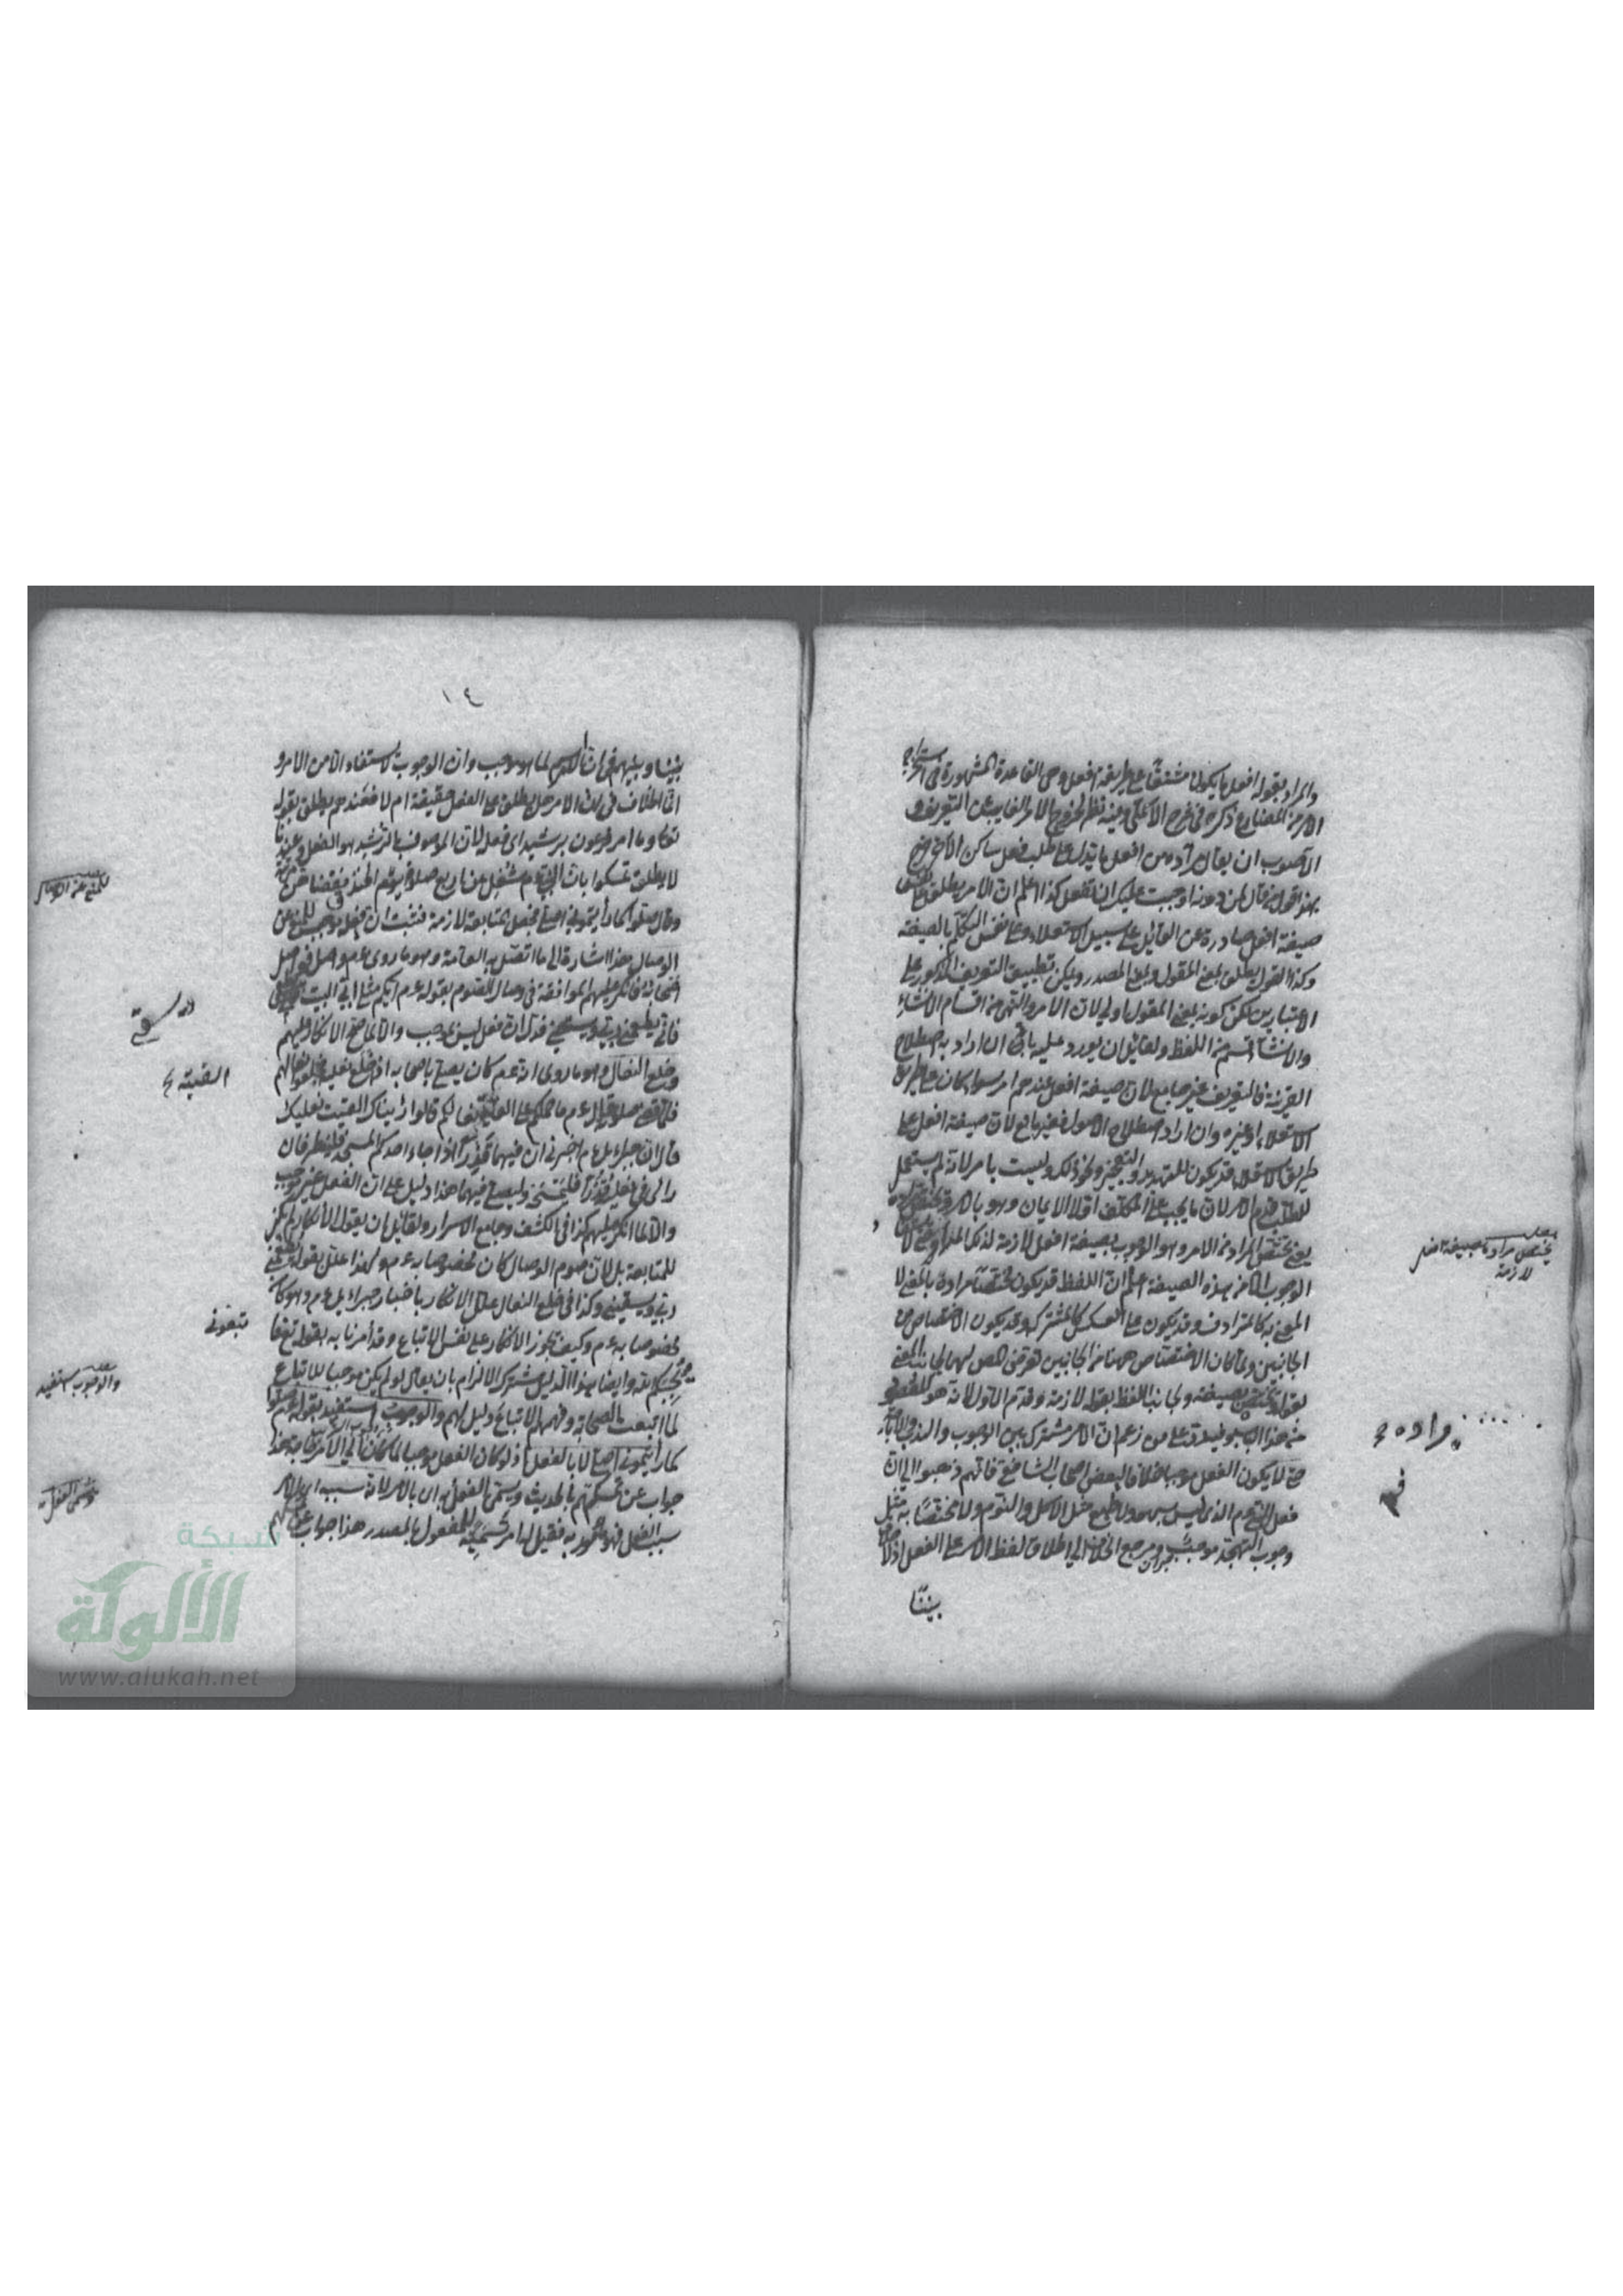 والمراد بقوله افعل ما يكون مشتقا على طريقة افعل وهى القاعدة المشهورة فى استخراج
الامر من المضارع ذكره فى شرح الاعلى وفيه نظر لخروج الامر الغايب عن التعريف و
الاصوب ان يقال المراد من افعل ما يدل على طلب فعل ساكن الاخر خرج
بهذا قول من قال لمن دونه اوجبت عليك ان تفعل كذا اعلم ان الامر يطلق على
صيغة افعل صادرة عن القائل على سبيل الاستعلاء وعلى نفس التكلم بالصيغة
وكذا القول يطلق بمعنى المقول وبمعنى المصدر ويمكن تطبيق التعريف المذكور على
الاعتبارين لكن كونه بمعنى المقول اولى لان الامر والنهى من اقسام الانشاء
والانشاء قسم من اللفظ ولقائل ان يورد عليه بانه ان اراد به اصطلاح
العربية فالتعريف غير جامع لان صيغة افعل عندهم امر سواء كان على طريق
الاستعلاء او غيره وان اراد اصطلاح الاصول فغير مانع لان صيغة افعل على
طريق الاستعلاء قد يكون للتهديد والتعجيز ونحو ذلك وليست بامر لانه لم يستعمل
للطلب قدم الامر لان ما يجب على المكلف اولا الايمان وهو بالامر
يعنى يختص المراد من الامر وهو الوجوب بصيغة افعل لازمة لذلك المراد
الوجوب الا من بهذه الصيغة اعلم ان اللفظ قد يكون مختصا مرادة بالمعنى لا
المعنى به كالمترادف وقد يكون على العكس كالمشترك وقد يكون الاختصاص من
الجانبين ولما كان الاختصاص ههنا من الجانبين تعرض المص لهما لجانب المعنى
بقوله يختص بصيغة ولجانب اللفظ بقوله لازمة وقدم الاول لانه هو المقصود
من هذا الباب فيه رد على من زعم ان الامر مشترك بين الوجوب والندب والاباحة
حتى لا يكون الفعل موجبا خلافا لبعض اصحاب الشافعى فانهم ذهبوا الى ان
فعل النبى عم الذى ليس بسهو ولا طبع مثل الاكل والنوم ولا مختصا به مثل
وجوب التهجد موجب ومرجع الخلاف الى اطلاق لفظ الامر على الفعل اذ لا خلاف
بيننا
يختص مراده بصيغة
لازمة
مراده
١٤
بيننا وبينهم فى ان الامر لما هو موجب وان الوجوب لا يستفاد الا من الامر و
انما الخلاف فى ان الامر هل يطلق على الفعل حقيقة ام لا فعندهم يطلق بقوله
تعالى وما امر فرعون برشيد اى فعله لان الموصوف بالرشد هو الفعل وعندنا
لا يطلق تمسكوا بان النبى عم شغل عن اربع صلوة يوم الخندق فقضاهن مرتبة
وقال صلوا كما رأيتمونى اصلى فجعل المتابعة لازمة فثبت ان فعله موجب للمنع عن
الوصال هذا اشارة الى ما اتصل به العامة وهو ما روى عم واصل فواصل
اصحابه فانكر عليهم الموافقة فى وصال الصوم بقوله عم ايكم مثلى ابيت
فانى يطعمنى ربى ويسقينى فدل ان فعله ليس بموجب والا لما صح الانكار عليهم
وخلع النعال وهو ما روى انه عم كان يصلى باصحابه اذ خلع نعليه فخلعوا نعالهم
فلما قضى صلوته قال عم ما حملكم على القائكم نعالكم قالوا رأيناك القيت نعليك
قال ان جبرئيل عم اخبرنى ان فيهما قذرا اذا جاء احدكم المسجد فلينظر فان
رأى فى نعليه قذرا فليمسحه وليصل فيهما هذا دليل على ان الفعل غير موجب
والا لما انكر عليهم كذا فى الكشف وجامع الاسرار ولقائل ان يقول الانكار لم يكن
للمتابعة بل لان صوم الوصال كان مخصوصا به عم ولهذا علل بقوله يطعمنى
ربى ويسقينى وكذا فى خلع النعال علل الانكار باخبار جبرائيل عم وهو كان
مخصوصا به عم وكيف يجوز الانكار على نفس الاتباع وقد أمرنا به بقوله تع فاتبعونى
يحببكم الله وايضا هذا الدليل مشترك الالزام بان يقال لو لم يكن موجبا للاتباع
لما اتبعت الصحابة وفهمهم الاتباع دليل لهم والوجوب استفيد بقوله عم صلوا
كما رأيتمونى اصلى لا بالفعل اذ لو كان الفعل موجبا لما كان الى الامر حاجة هذا
جواب عن تمسكهم بالحديث ويسمى الفعل به اى بالامر لانه سببه اى الامر
سبب الفعل فهو مأمور به فقيل له امر تسمية للمفعول بالمصدر هذا جواب عن
للمنع عن الوصال
يسقى
القيته
تبعونى
والوجوب استفيد
وسمى الفعل به
شبكة
الألوكة
www.alukah.net